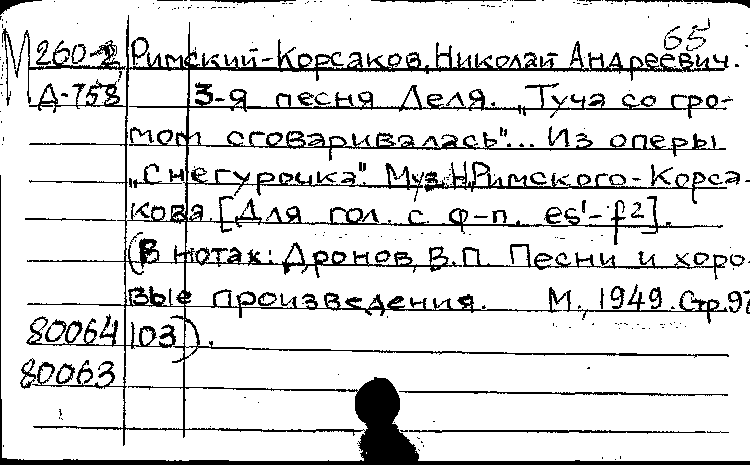 65
М 260-2 Римский-Корсаков, Николай Андреевич.
Д-758 3-я песня Леля. „Туча со гро-
мом сговаривалась"... Из оперы
„Снегурочка". Муз. Н. Римского-Корса-
кова. [Для гол. с ф-п. es'-f2].
(В нотах: Дронов, В.П. Песни и хоро-
вые произведения. М., 1949. Стр. 97
80064 103).
80063